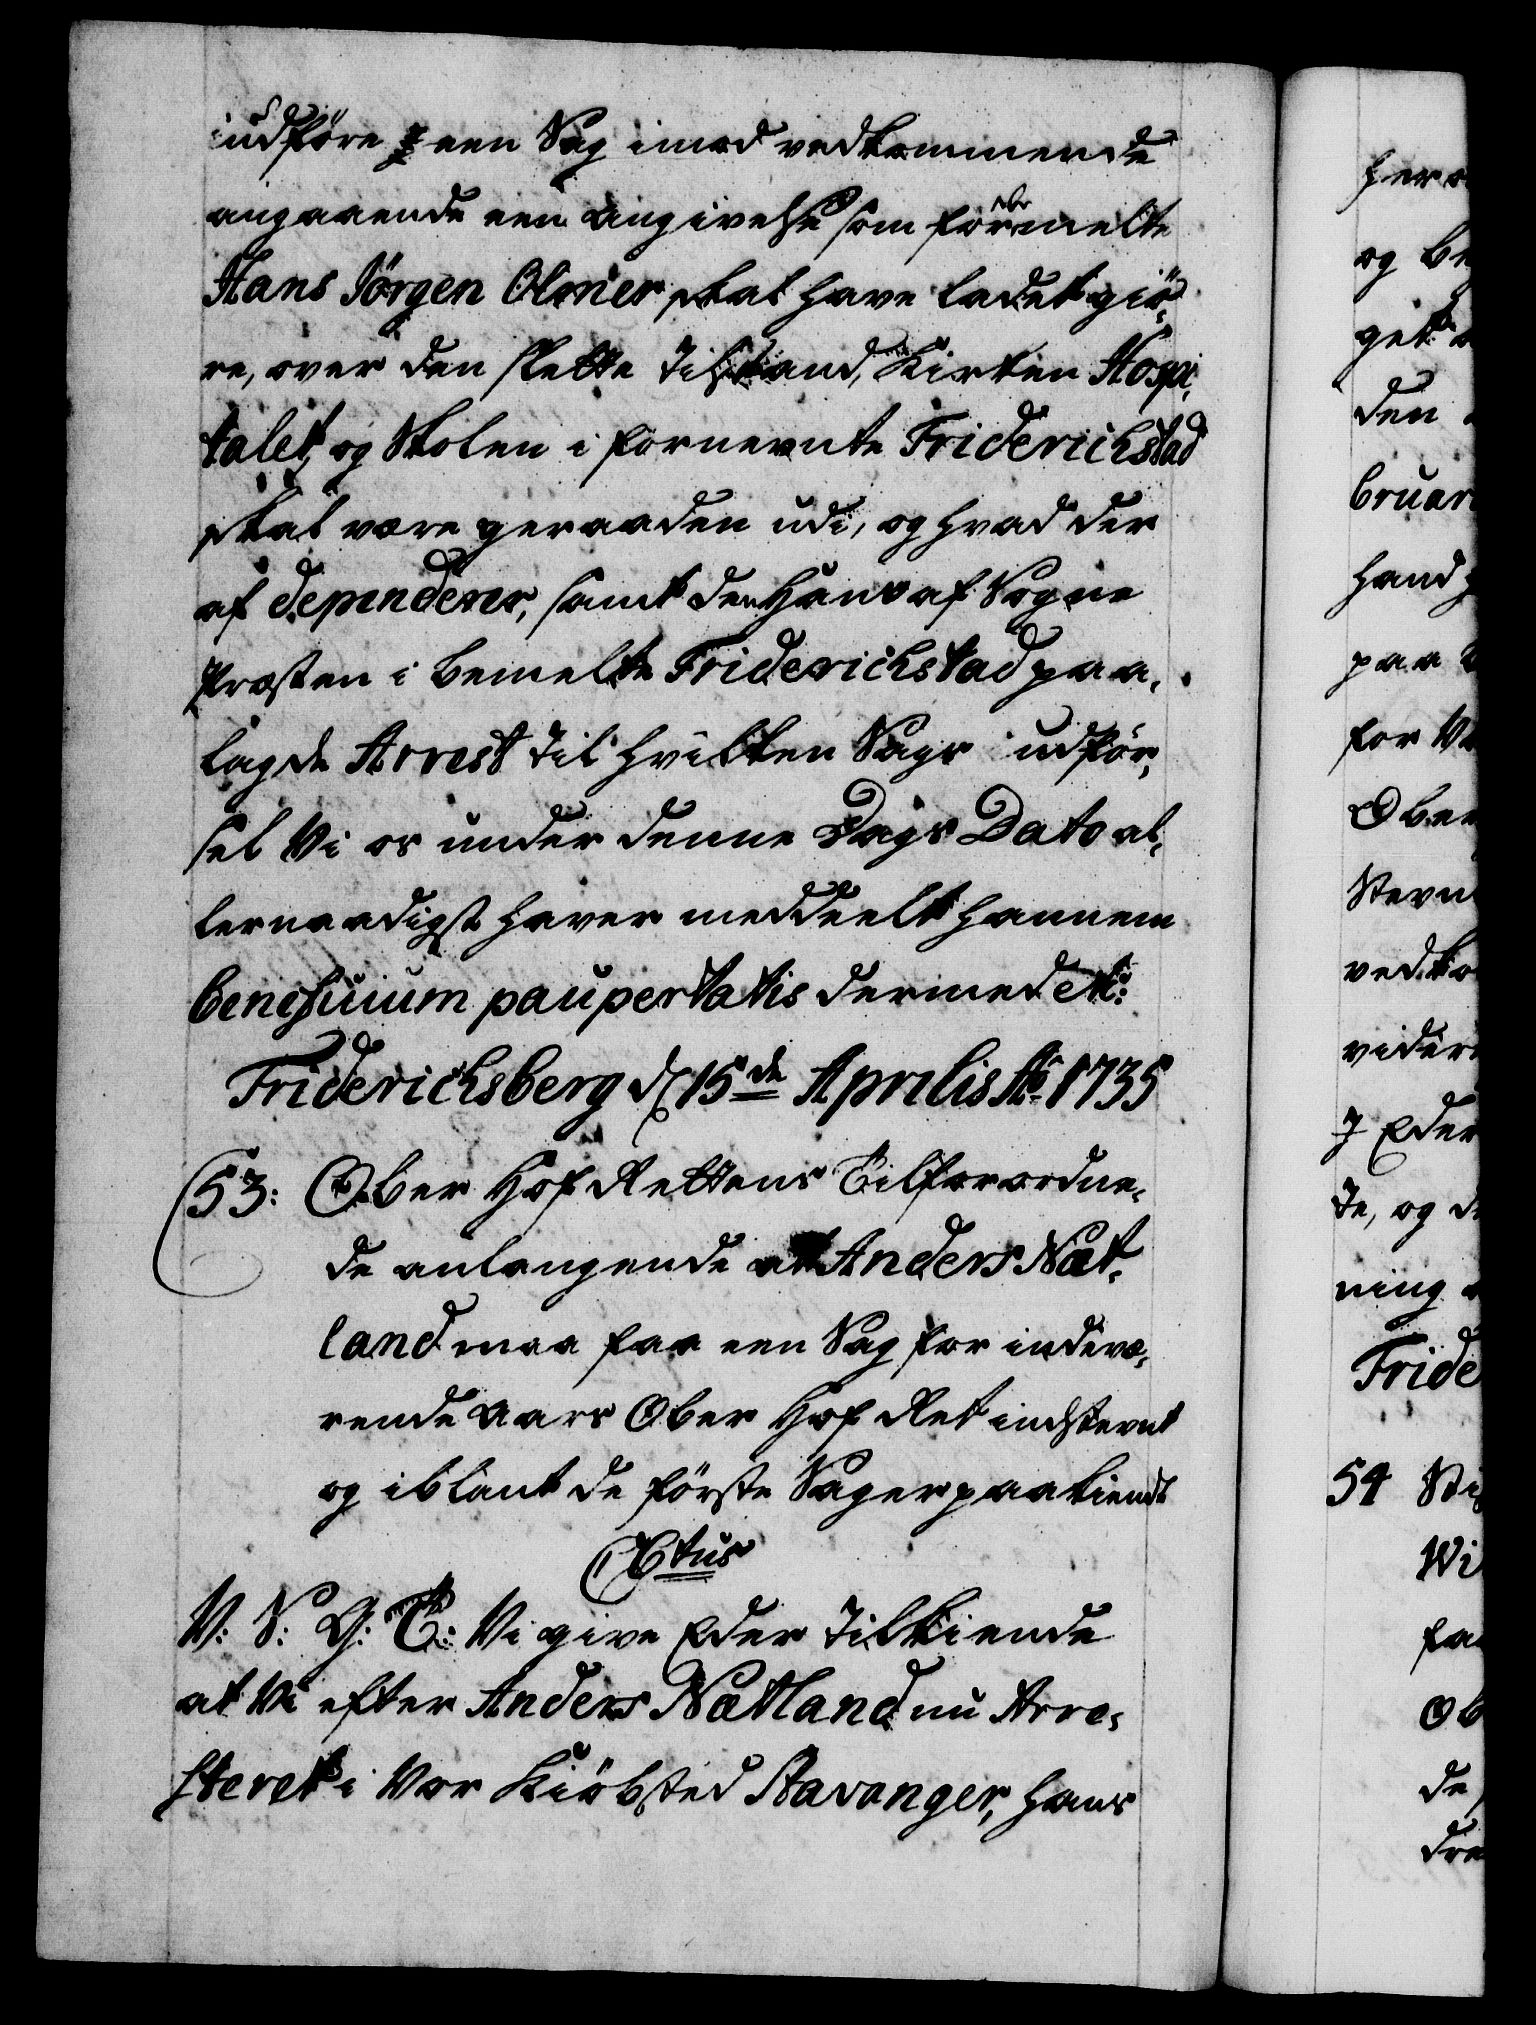 udføre een Sag imod vedkommende
angaaende een angivelse som formelte
Hans Jörgen Olmer skal have ladet giö,
re, over den slette Tilstand, Kirken Hospi,
talet, og Skolen i fornevnte Friderichstad
skal være geraaden udi, og hvad der
af dependerer, samt den Hans af Sogne
Præsten i bemelte Friderichstad paa,
lagde Arrest til hvilken Sags udför,
sel Vi os under denne Dags Dato al,
lernaadigst haver meddeelt hannem
beneficium paupertatis dermed etc:
Friderichsberg d 15de Aprilis Ao 1735
53: Ober Hof Rettens Tilforordne,
de anlangende at Anders Næt,
land maa faa een Sag for indevæ,
rende Aars Ober Hof Ret indstevnt
og iblant de förste Sager paakiendt
C 6tus
V: S: G: T: Vi give Eder Tilkiende
at Vi efter Anders Nætland nu Arre,
steret i Vor Kiöbsted Stavanger, hans
her
og be
get
den
bruari
hand
paa
for
Ober
Stevn
vedko
videre
J Eder
te, og d
ning
Fride
54 Sti
Wi
faa
Ob
de
dre